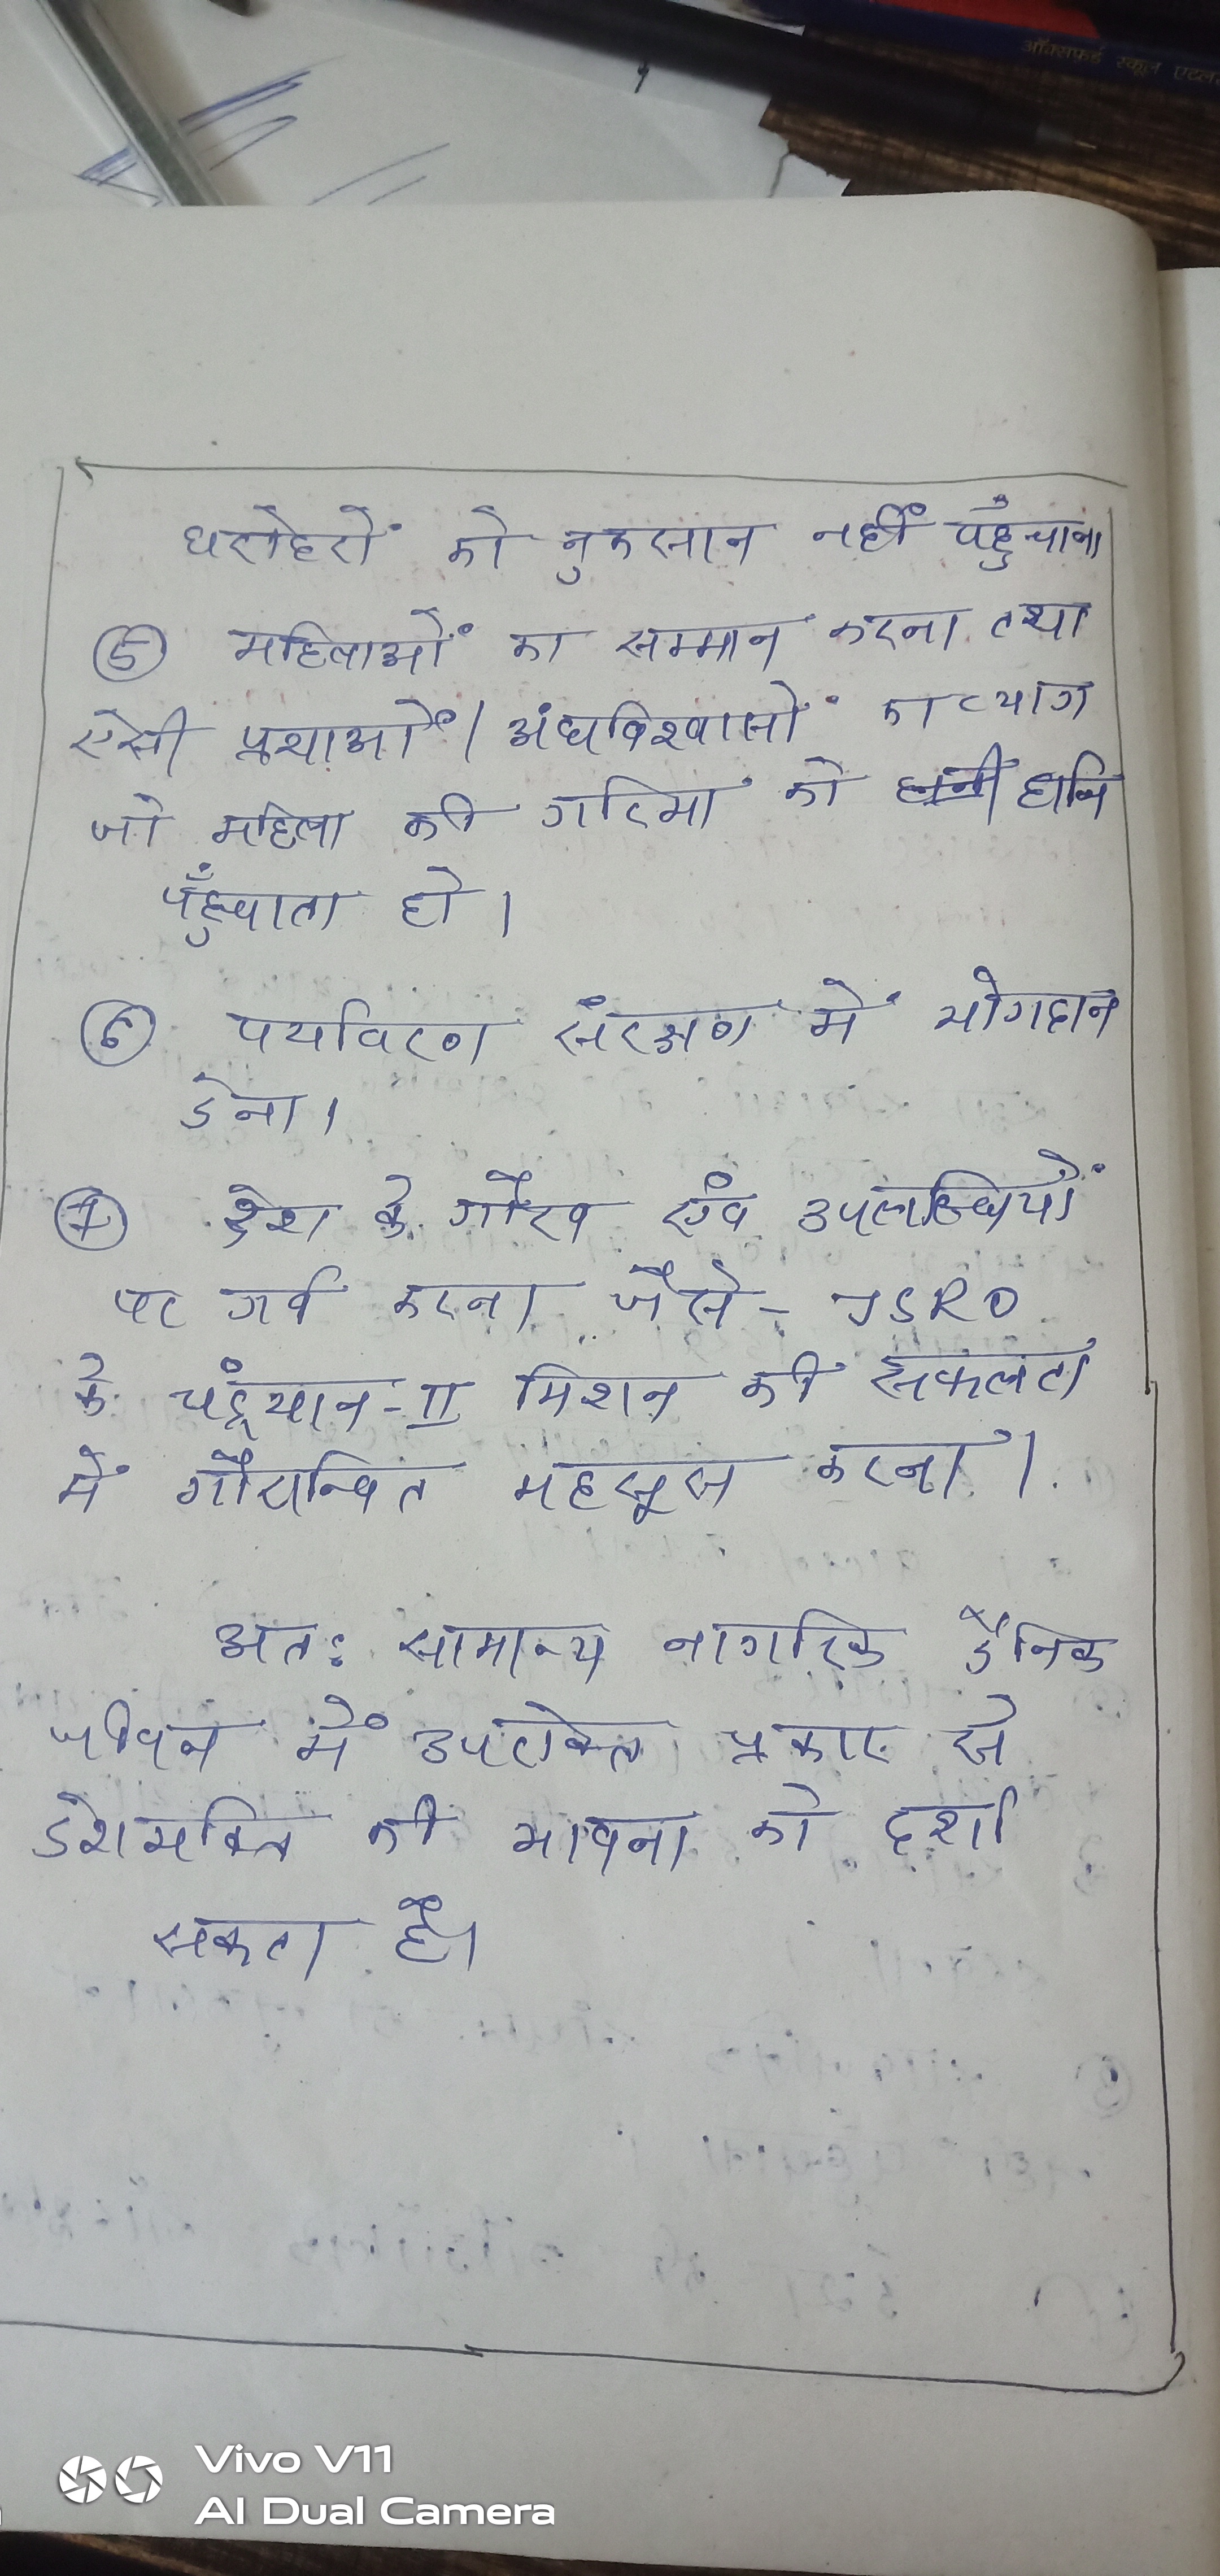 ऑक्सफ़र्ड स्कूल एटलस
धरोहरों को नुकसान नहीं पहुँचाना
5 महिलाओं का सम्मान करना तथा
ऐसी प्रथाओं/अंधविश्वासों का त्याग
जो महिला की गरिमा को हानि
पहुँचाता हो।
6 पर्यावरण संरक्षण में योगदान
देना।
7 देश के गौरव एंव उपलब्धियों
पर गर्व करना जैसे- ISRO
के चंद्रयान-II मिशन की सफलता
में गौरान्वित महसूस करना।
अतः सामान्य नागरिक दैनिक
जीवन में उपरोक्त प्रकार से
देशभक्ति की भावना को दर्शा
सकता है।
Vivo V11
AI Dual Camera